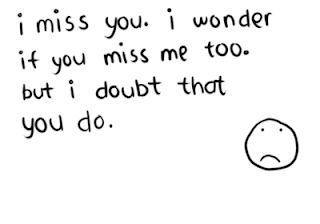 i miss you. i wonder
if you miss me too.
but i doubt that
you do.